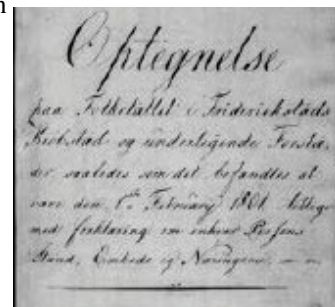 n
Optegnelse
paa Folketallet i Friderichstads
Kiøbstad og underliggende Forstæ-
der, saaledes som det befandtes at
være den 1ste February 1801 tillige
med forklaring om enhver Persons
Stand, Embede og Næringsvei